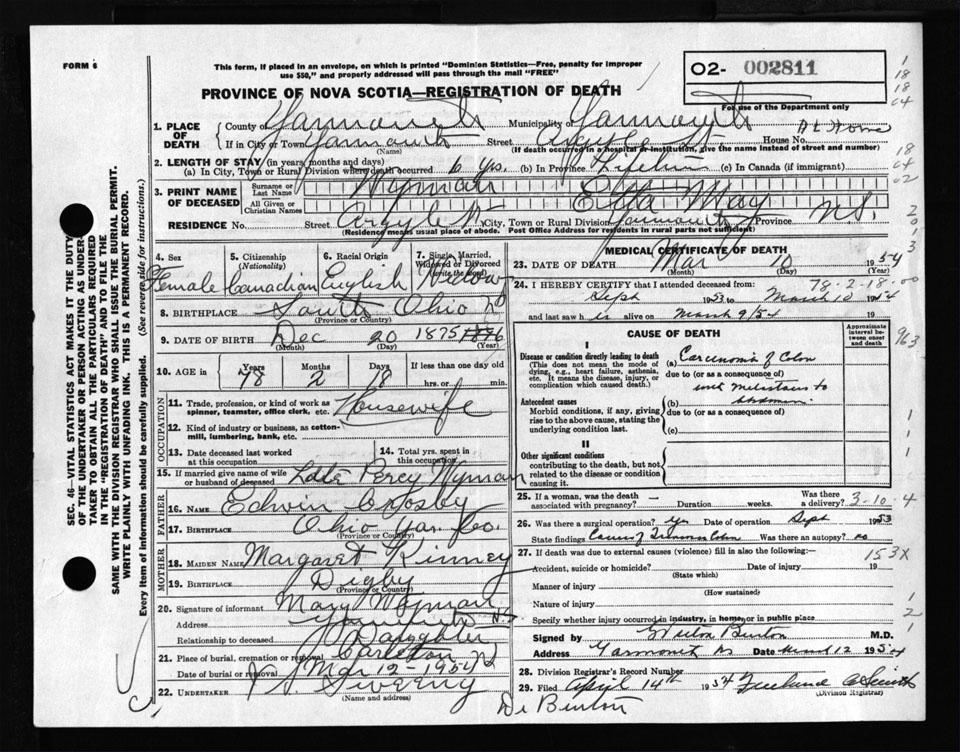 FORM 6
This form, if placed in an envelope, on which is printed "Dominion Statistics—Free, penalty for improper
use $50," and properly addressed will pass through the mail "FREE"
O2- 002811
For use of the Department only
PROVINCE OF NOVA SCOTIA—REGISTRATION OF DEATH
1. PLACE OF DEATH
County of Yarmouth Municipality of Yarmouth
If in City or Town Yarmouth Street Argyle St. House No. At Home
(Name) (If death occurred in a hospital or institution, give the name instead of street and number)
2. LENGTH OF STAY (in years, months and days)
(a) In City, Town or Rural Division where death occurred 6 yrs. (b) In Province Lifetime (c) In Canada (if immigrant)
3. PRINT NAME OF DECEASED
Surname or Last Name Wyman
All Given or Christian Names Etta May
RESIDENCE No. Street Argyle St City, Town or Rural Division Yarmouth Province N.S.
(Residence means usual place of abode. Post Office Address for residents in rural parts not sufficient)
4. Sex Female
5. Citizenship (Nationality) Canadian
6. Racial Origin English
7. Single, Married, Widowed or Divorced (write the word) Widow
8. BIRTHPLACE South Ohio
(Province or Country)
9. DATE OF BIRTH Dec 20 1875 1876
(Month) (Day) (Year)
10. AGE in Years 78 Months 2 Days 18 If less than one day old
hrs. or min.
OCCUPATION
11. Trade, profession, or kind of work as spinner, teamster, office clerk, etc. Housewife
12. Kind of industry or business, as cotton-mill, lumbering, bank, etc.
13. Date deceased last worked at this occupation
14. Total yrs. spent in this occupation
15. If married give name of wife or husband of deceased Late Percy Wyman
FATHER
16. NAME Edwin Crosby
17. BIRTHPLACE Ohio Yar. Co.
(Province or Country)
MOTHER
18. MAIDEN NAME Margaret Kinney
19. BIRTHPLACE Digby
(Province or Country)
20. Signature of informant Mary Wyman
Address Yarmouth N.S.
Relationship to deceased Daughter
21. Place of burial, cremation or removal Carleton
Date of burial or removal Mar 12-1954
22. UNDERTAKER V. S. Sweeny
(Name and address)
MEDICAL CERTIFICATE OF DEATH
23. DATE OF DEATH Mar 10 1954
(Month) (Day) (Year)
78-2-18-00
24. I HEREBY CERTIFY that I attended deceased from:
Sept 1953 to March 10 1954
and last saw h is alive on March 9/54 19
CAUSE OF DEATH
Approximate interval between onset and death
I
Disease or condition directly leading to death
(This does not mean the mode of dying, e.g., heart failure, asthenia, etc. It means the disease, injury, or complication which caused death.)
(a) Carcinoma of Colon
due to (or as a consequence of)
with metastasis to
Antecedent causes
Morbid conditions, if any, giving rise to the above cause, stating the underlying condition last.
(b) abdomen
due to (or as a consequence of)
(c)
II
Other significant conditions
contributing to the death, but not related to the disease or condition causing it.
25. If a woman, was the death associated with pregnancy? — Duration weeks. Was there a delivery? 3-10-4
26. Was there a surgical operation? yes Date of operation Sept 1953
State findings Colon Was there an autopsy? no
27. If death was due to external causes (violence) fill in also the following:—
153X
Accident, suicide or homicide? Date of injury 19
(State which)
Manner of injury
(How sustained)
Nature of injury
Specify whether injury occurred in industry, in home, or in public place
Signed by Burton M.D.
Address Yarmouth NS Date March 12 1954
28. Division Registrar's Record Number
29. Filed April 14th 1954
(Division Registrar)
Dr Burton
SEC. 46—VITAL STATISTICS ACT MAKES IT THE DUTY
OF THE UNDERTAKER OR PERSON ACTING AS UNDER-
TAKER TO OBTAIN ALL THE PARTICULARS REQUIRED
IN THE "REGISTRATION OF DEATH" AND TO FILE THE
SAME WITH THE DIVISION REGISTRAR WHO SHALL ISSUE THE BURIAL PERMIT.
WRITE PLAINLY WITH UNFADING INK. THIS IS A PERMANENT RECORD.
Every item of information should be carefully supplied. (See reverse side for instructions.)